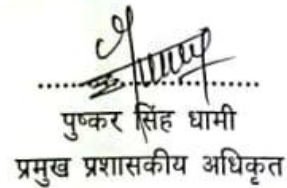 पुष्कर सिंह धामी
प्रमुख प्रशासकीय अधिकृत